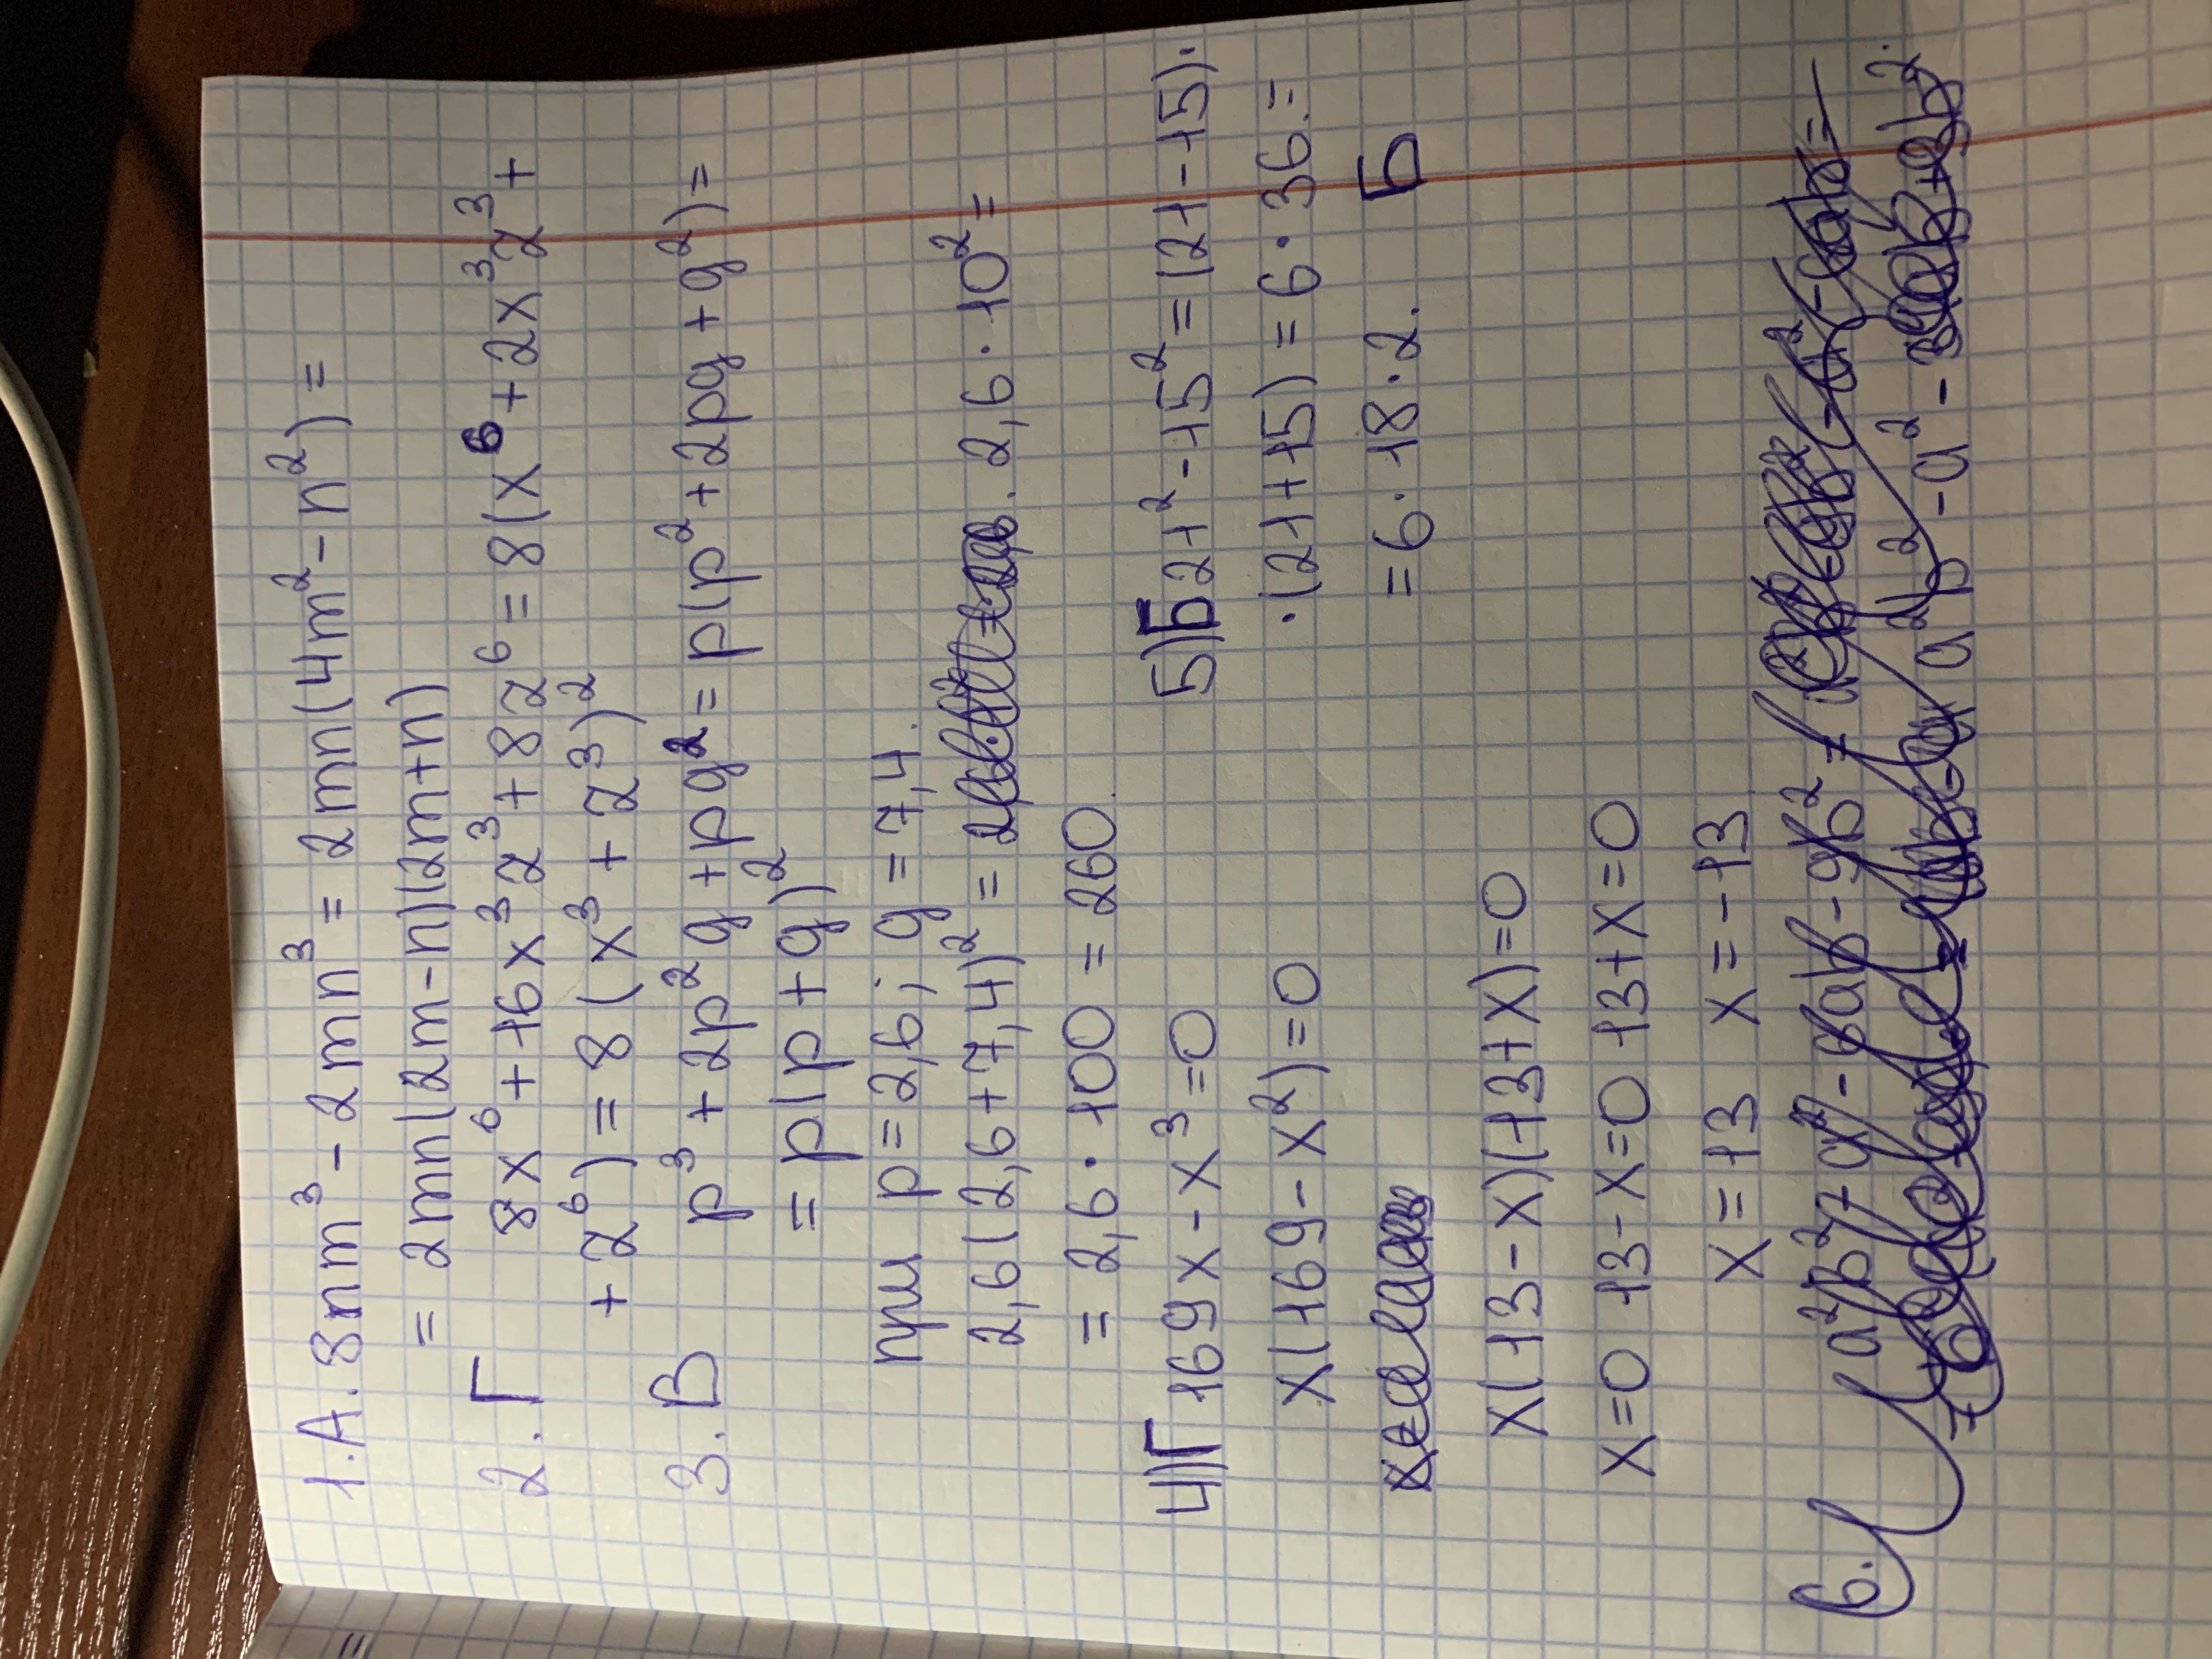 1. А. 8nm³ - 2mn³ = 2mn(4m² - n²) =
= 2mn(2m-n)(2m+n)
2. Г 8x⁶ + 16x³z³ + 8z⁶ = 8(x⁶ + 2x³z³ +
+ z⁶) = 8(x³ + z³)²
3. В p³ + 2p²g + pg² = p(p² + 2pg + g²) =
= p(p + g)²
при p = 2,6; g = 7,4.
2,6(2,6 + 7,4)² = 2,6 · 10² =
= 2,6 · 100 = 260.
4) Г 169x - x³ = 0
x(169 - x²) = 0
x(13 - x)(13 + x) = 0
x = 0 13 - x = 0 13 + x = 0
x = 13 x = -13
5) Б 21² - 15² = (21 - 15) ·
· (21 + 15) = 6 · 36. =
= 6 · 18 · 2. Б
6.